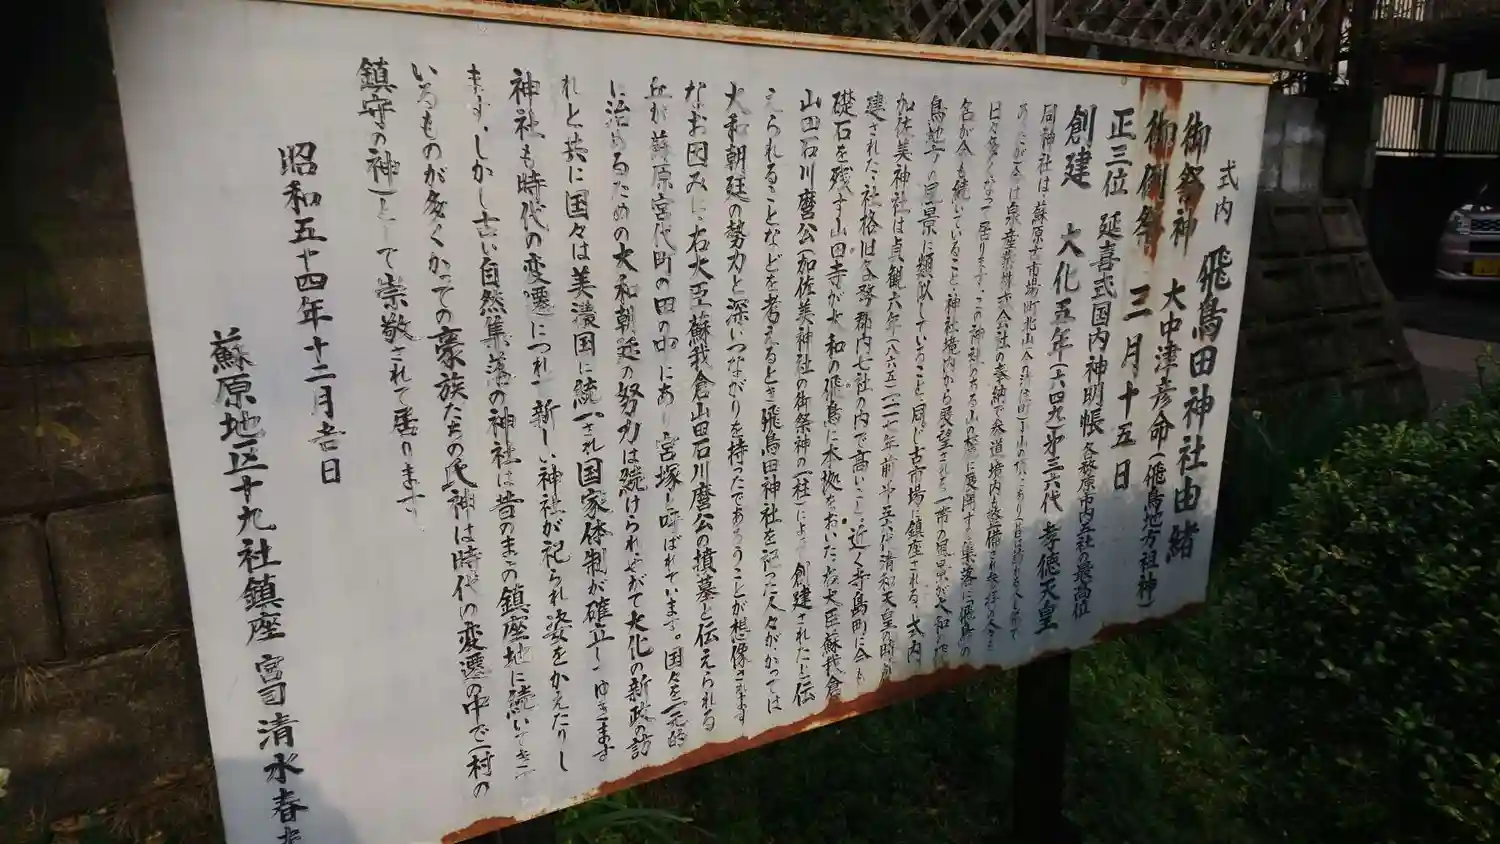 式内 飛鳥田神社由緒
御祭神 大中津彦命(飛鳥地方祖神)
御例祭 三月十五日
正三位 延喜式国内神明帳 各務原市内五社の最高位
創建 大化五年(六四九)第三六代 孝徳天皇
同神社は、蘇原古市場町北山
日々多くなって居ります。この神社のある山の麓に展開する集落に飛鳥の
名が今も続いていること、神社境内から展望される一帯の風景が大和
鳥地方の風景に類似していること、同じ古市場に鎮座される、式内
加佐美神社は貞観六年(八六五)(二一七年前第五六代清和天皇の時
建された、社格旧各務郡内七社の内で高いこと、近く寺島町に今も
礎石を残す山田寺が大和の飛鳥に本拠をおいた右大臣蘇我倉
山田石川麿公(加佐美神社の御祭神の一柱)によって創建されたと伝
えられることなどを考えるとき飛鳥田神社を記った人々がかっては
大和朝廷の勢力と深いつながりを持ったであろうことが想像されます
なお因みに右大臣蘇我倉山田石川麿公の墳墓と伝えられる
丘が蘇原宮代町の田の中にあり宮塚と呼ばれています。国々を一元的
に治めるための大和朝廷の努力は続けられやがて大化の新政の訪
れと共に国々は美濃国に統一され国家体制が確立してゆきます
神社も時代の変遷につれて新しい神社が祀られ姿をかえたりし
ます。しかし古い自然集落の神社は昔のままの鎮座地に続いてきて
いるものが多くかっての豪族たちの氏神は時代の変遷の中で(村の
鎮守の神)として崇敬されて居ります
昭和五十四年十二月吉日
蘇原地区十九社鎮座 宮司 清水春